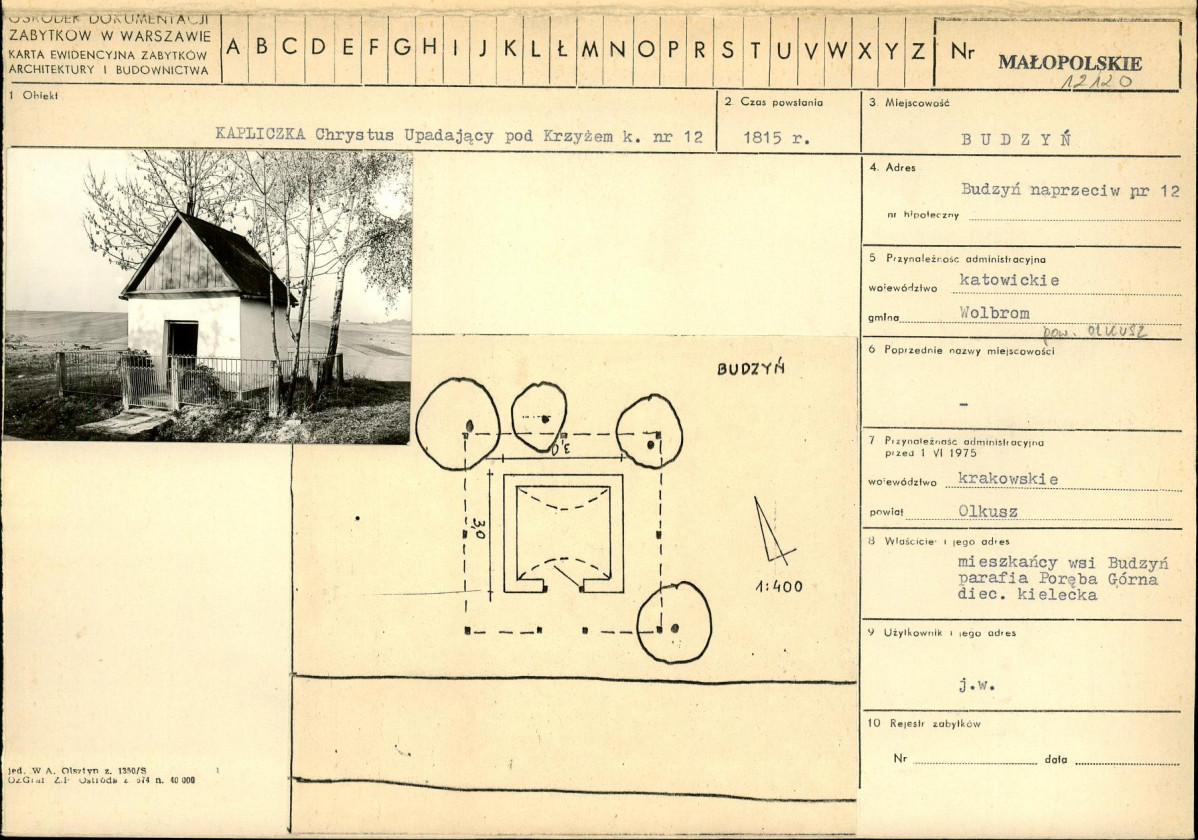 OŚRODEK DOKUMENTACJI
ZABYTKÓW W WARSZAWIE
KARTA EWIDENCYJNA ZABYTKÓW
ARCHITEKTURY I BUDOWNICTWA
A B C D E F G H I J K L Ł M N O P R S T U V W X Y Z
Nr
MAŁOPOLSKIE
12120
1 Obiekt
KAPLICZKA Chrystus Upadający pod Krzyżem k. nr 12
2 Czas powstania
1815 r.
3. Miejscowość
BUDZYŃ
4. Adres
Budzyń naprzeciw nr 12
nr hipoteczny
5 Przynależność administracyjna
województwo katowickie
gmina Wolbrom
pow. OLKUSZ
6 Poprzednie nazwy miejscowości
–
7 Przynależność administracyjna
przed 1 VI 1975
województwo krakowskie
powiat Olkusz
8 Właściciel i jego adres
mieszkańcy wsi Budzyń
parafia Poręba Górna
diec. kielecka
9 Użytkownik i jego adres
j.w.
10 Rejestr zabytków
Nr data
BUDZYŃ
3,0
3,0
1:400
jed. W A. Olsztyn z. 1350/S
OZGraf. Z.P. Ostróda z. 574 n. 40 000